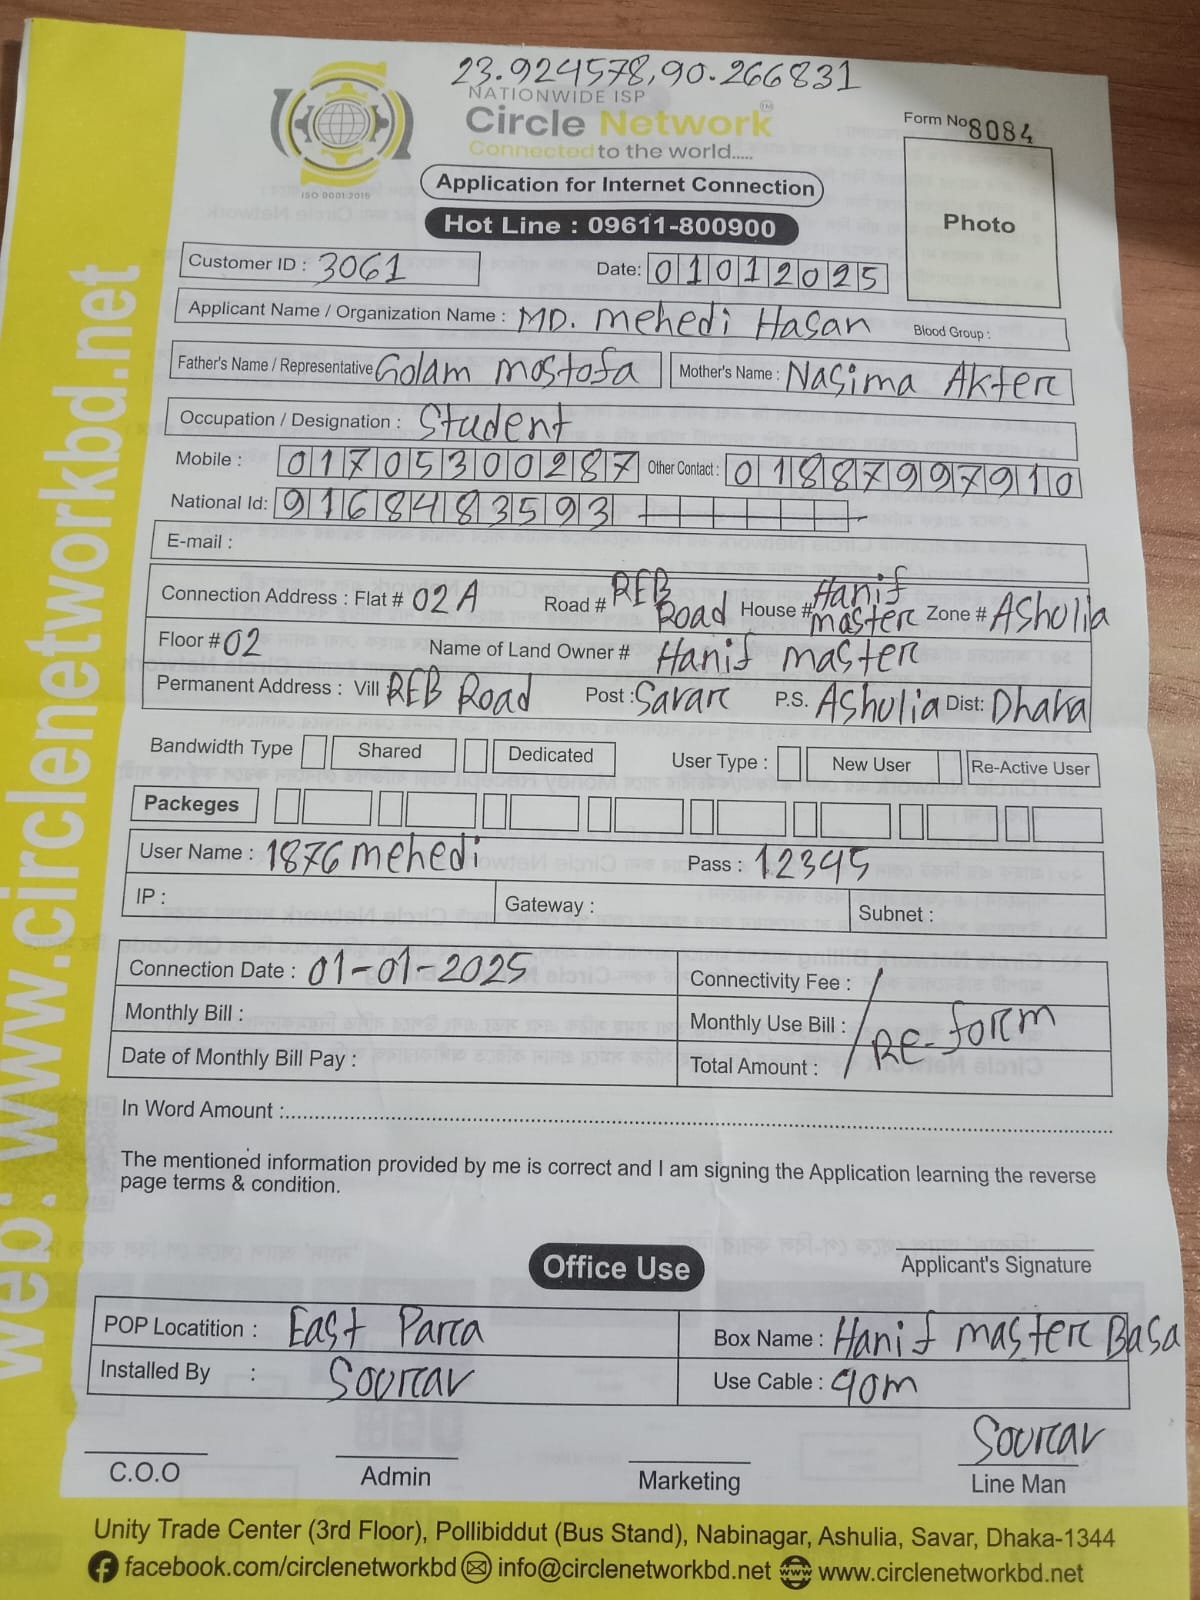 23.924578,90.266831
NATIONWIDE ISP
Circle Network™
Connected to the world.....
ISO 9001:2015
Form No 8084
Photo
Application for Internet Connection
Hot Line : 09611-800900
Customer ID : 3061 Date: 01012025
Applicant Name / Organization Name : MD. Mehedi Hasan Blood Group :
Father's Name / Representative Golam Mostofa Mother's Name : Nasima Akter
Occupation / Designation : Student
Mobile : 01705300287 Other Contact : 01887997910
National Id: 9168483593
E-mail :
Connection Address : Flat # 02A Road # REB Road House # Hanif master Zone # Ashulia
Floor # 02 Name of Land Owner # Hanif master
Permanent Address : Vill REB Road Post : Savar P.S. Ashulia Dist: Dhaka
Bandwidth Type Shared Dedicated User Type : New User Re-Active User
Packeges
User Name : 1876mehedi Pass : 12345
IP : Gateway : Subnet :
Connection Date : 01-01-2025 Connectivity Fee :
Monthly Bill : Monthly Use Bill : RE-form
Date of Monthly Bill Pay : Total Amount :
In Word Amount :
The mentioned information provided by me is correct and I am signing the Application learning the reverse
page terms & condition.
Applicant's Signature
Office Use
POP Locatition : East Para Box Name : Hanif master Basa
Installed By : Sourav Use Cable : 90m
Sourav
C.O.O Admin Marketing Line Man
Unity Trade Center (3rd Floor), Pollibiddut (Bus Stand), Nabinagar, Ashulia, Savar, Dhaka-1344
facebook.com/circlenetworkbd info@circlenetworkbd.net www.circlenetworkbd.net
web: www.circlenetworkbd.net